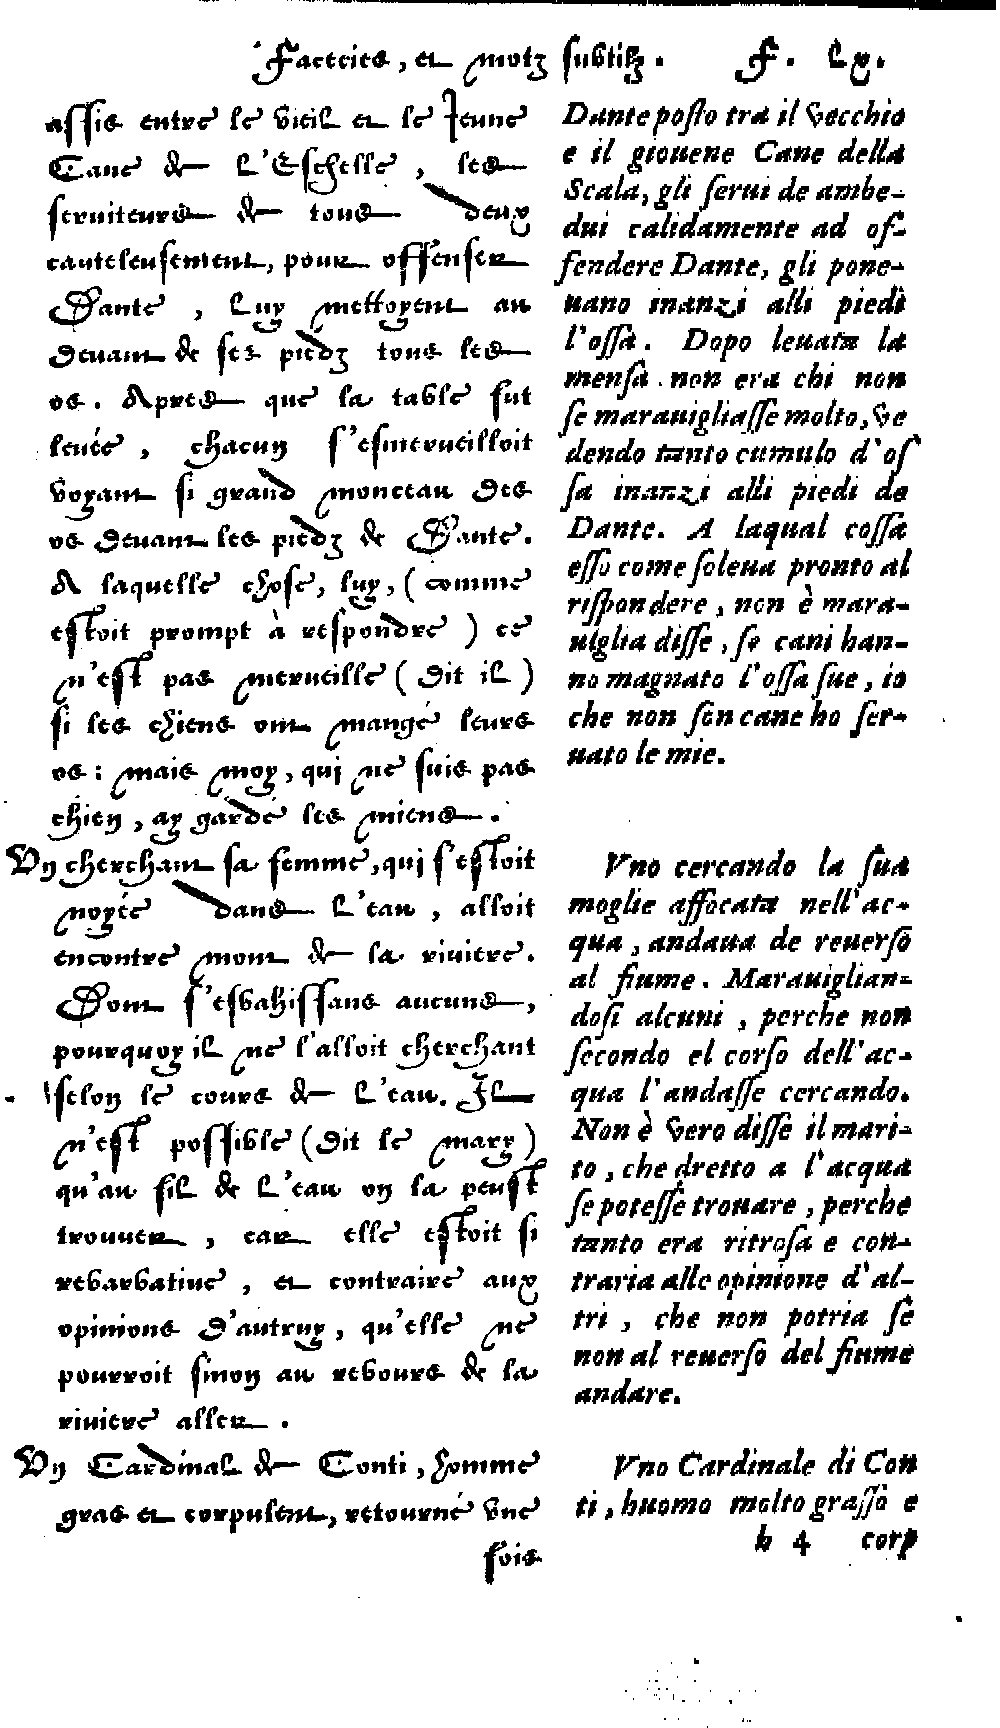 Facecies, et motz subtilz. F. Lx.
assis entre le vieil et le Jeune
Cane de L'Eschelle, les
serviteurs de tous deux
cauteleusement, pour offenser
Dante, Luy mettoyent au
devant de ses piedz tous les
os. Apres que la table fut
levée, chacun s'esmerveilloit
voyant si grand monceau des
os devant les piedz de Dante.
A laquelle chose, luy, (comme
estoit prompt à respondre) ce
n'est pas merveille (dit il)
si les chiens ont mangé leurs
os: mais moy, qui ne suis pas
chien, ay gardé les miens.
Vn cherchant sa femme, qui s'estoit
noyée dans L'eau, alloit
encontre mont de la riviere.
Dont s'esbahissans aucuns,
pourquoy il ne l'alloit cherchant
selon le cours de L'eau. Il
n'est possible (dit le mary)
qu'au fil de L'eau on la peust
trouver, car elle estoit si
rebarbative, et contraire aux
opinions d'autruy, qu'elle ne
pourroit sinon au rebours de la
riviere aller.
Vn Cardinal de Conti, homme
gras et corpulent, retourné vne
fois
Dante posto tra il Vecchio
e il giouene Cane della
Scala, gli serui de ambe-
dui calidamente ad of-
fendere Dante, gli pone-
uano inanzi alli piedi
l'ossa. Dopo leuata la
mensa non era chi non
se marauigliasse molto, ve
dendo tanto cumulo d'os
sa inanzi alli piedi de
Dante. A laqual cossa
esso come soleua pronto al
rispondere, non è mara-
uiglia disse, se cani han-
no magnato l'ossa sue, io
che non son cane ho ser-
uato le mie.
Vno cercando la sua
moglie affocata nell'ac-
qua, andaua de reuerso
al fiume. Marauiglian-
dosi alcuni, perche non
secondo el corso dell'ac-
qua l'andasse cercando.
Non è vero disse il mari-
to, che dretto a l'acqua
se potesse trouare, perche
tanto era ritrosa e con-
traria alle opinione d'al-
tri, che non potria se
non al reuerso del fiume
andare.
Vno Cardinale di Con
ti, huomo molto grasso e
h 4 corp